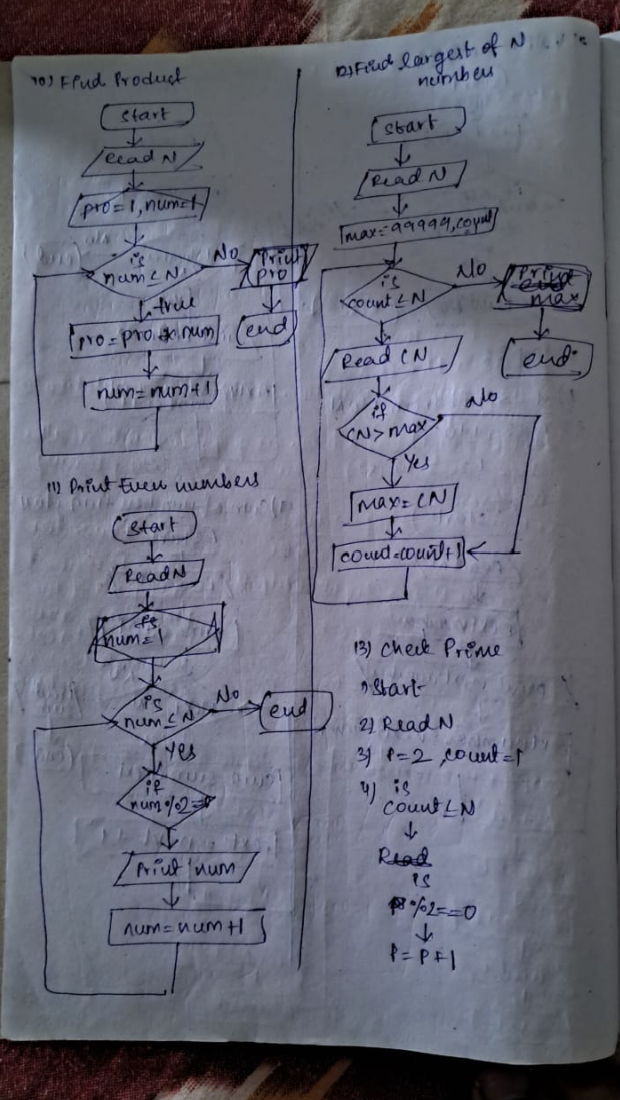 10) Find Product
Start
Read N
pro=1, num=1
is
num ≤ N
No
Print
pro
end
true
pro = pro * num
num = num+1
11) Print Even numbers
Start
Read N
num=1
is
num ≤ N
No
end
Yes
if
num%2=0
Print num
num = num+1
12) Find largest of N
numbers
Start
Read N
max=99999, count
is
count ≤ N
No
Print
max
end
Read CN
if
CN > max
No
Yes
max = CN
count=count+1
13) Check Prime
1) Start
2) Read N
3) P=2, count=1
4) is
count ≤ N
Read
is
P%2==0
P = P+1